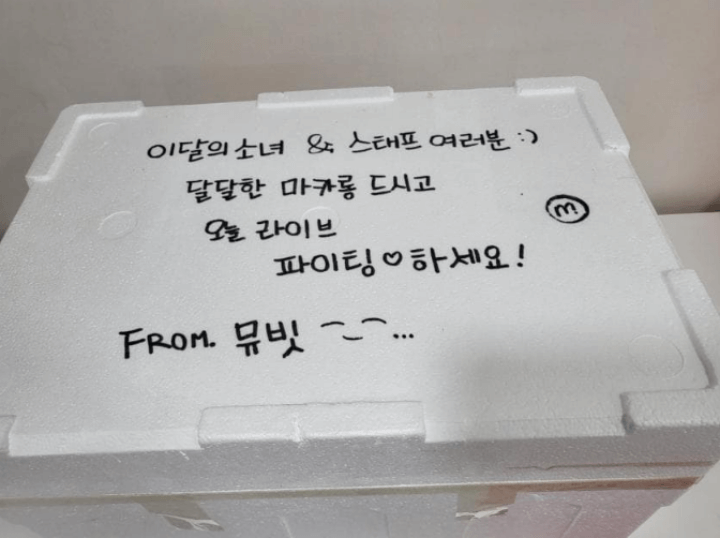 이달의소녀 & 스태프 여러분 :)
달달한 마카롱 드시고
오늘 라이브
파이팅♡하세요!
FROM. 뮤빗 ⌒_⌒...